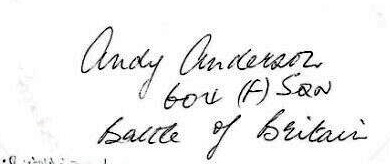 Andy Anderson
604 (F) Sqn
Battle of Britain